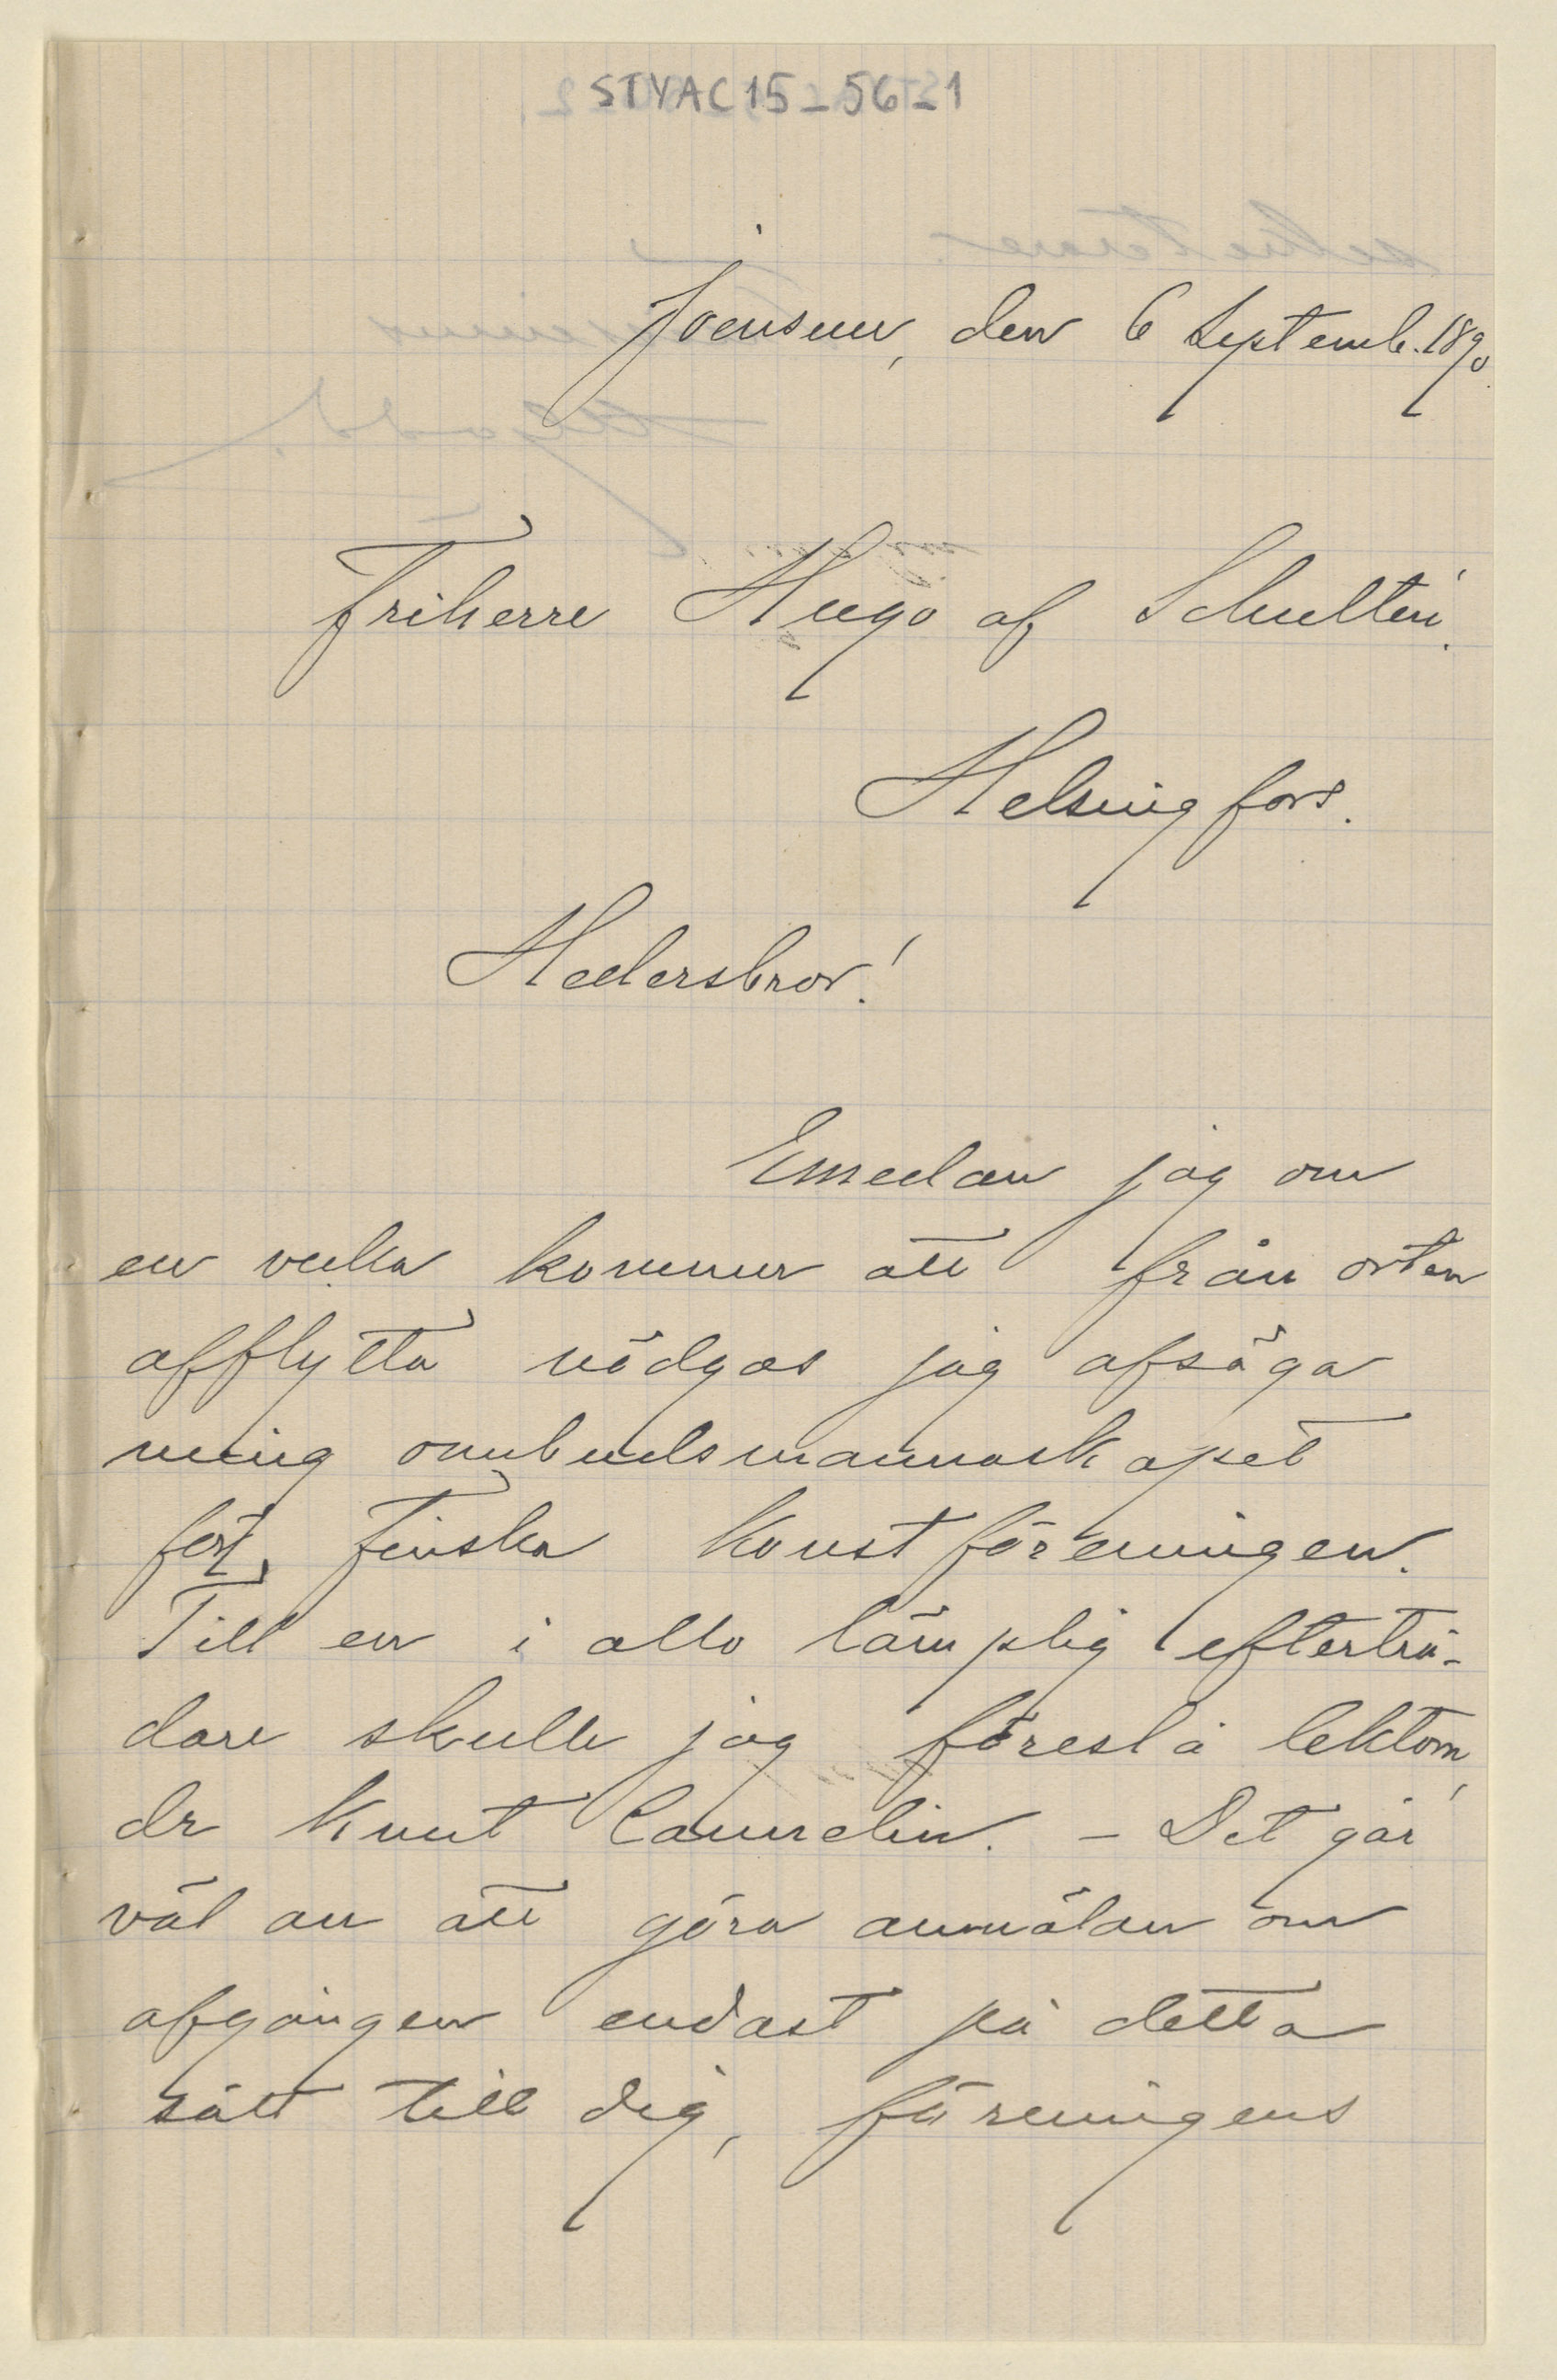 STYAC15_56_1
Joensuu, den 6 Septemb. 1890.
Friherre Hugo af Schultén.
Helsingfors.
Hedersbror!
Emedan jag om
en vecka kommer att från orten
afflytta nödgas jag afsäga
mig ombudsmannaskapet
för Finska Konstföreningen.
Till en i allo lämplig efterträ-
dare skulle jag föreslå lektorn,
dr Knut Cannelin. – Det går
väl an att göra anmälan om
afgången endast på detta
sätt till dig, föreningens